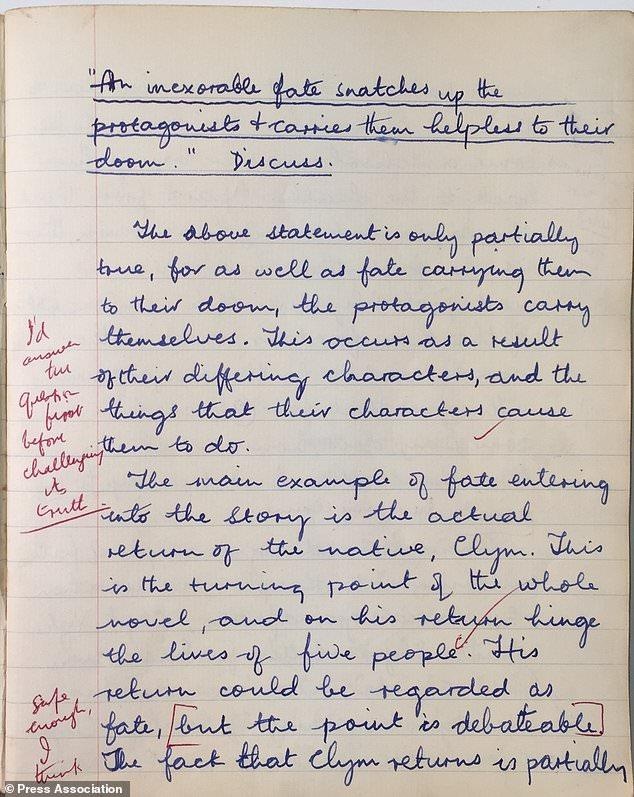 "An inexorable fate snatches up the
protagonists + carries them helpless to their
doom." Discuss.
The above statement is only partially
true, for as well as fate carrying them
to their doom, the protagonists carry
themselves. This occurs as a result
of their differing characters, and the
things that their characters cause
them to do.
I'd
answer
the
question
first
before
challenging
its
truth
The main example of fate entering
into the story is the actual
return of the native, Clym. This
is the turning point of the whole
novel, and on his return hinge
the lives of five people. His
return could be regarded as
fate, [but the point is debateable.]
The fact that Clym returns is partially
safe
enough,
I
think
© Press Association